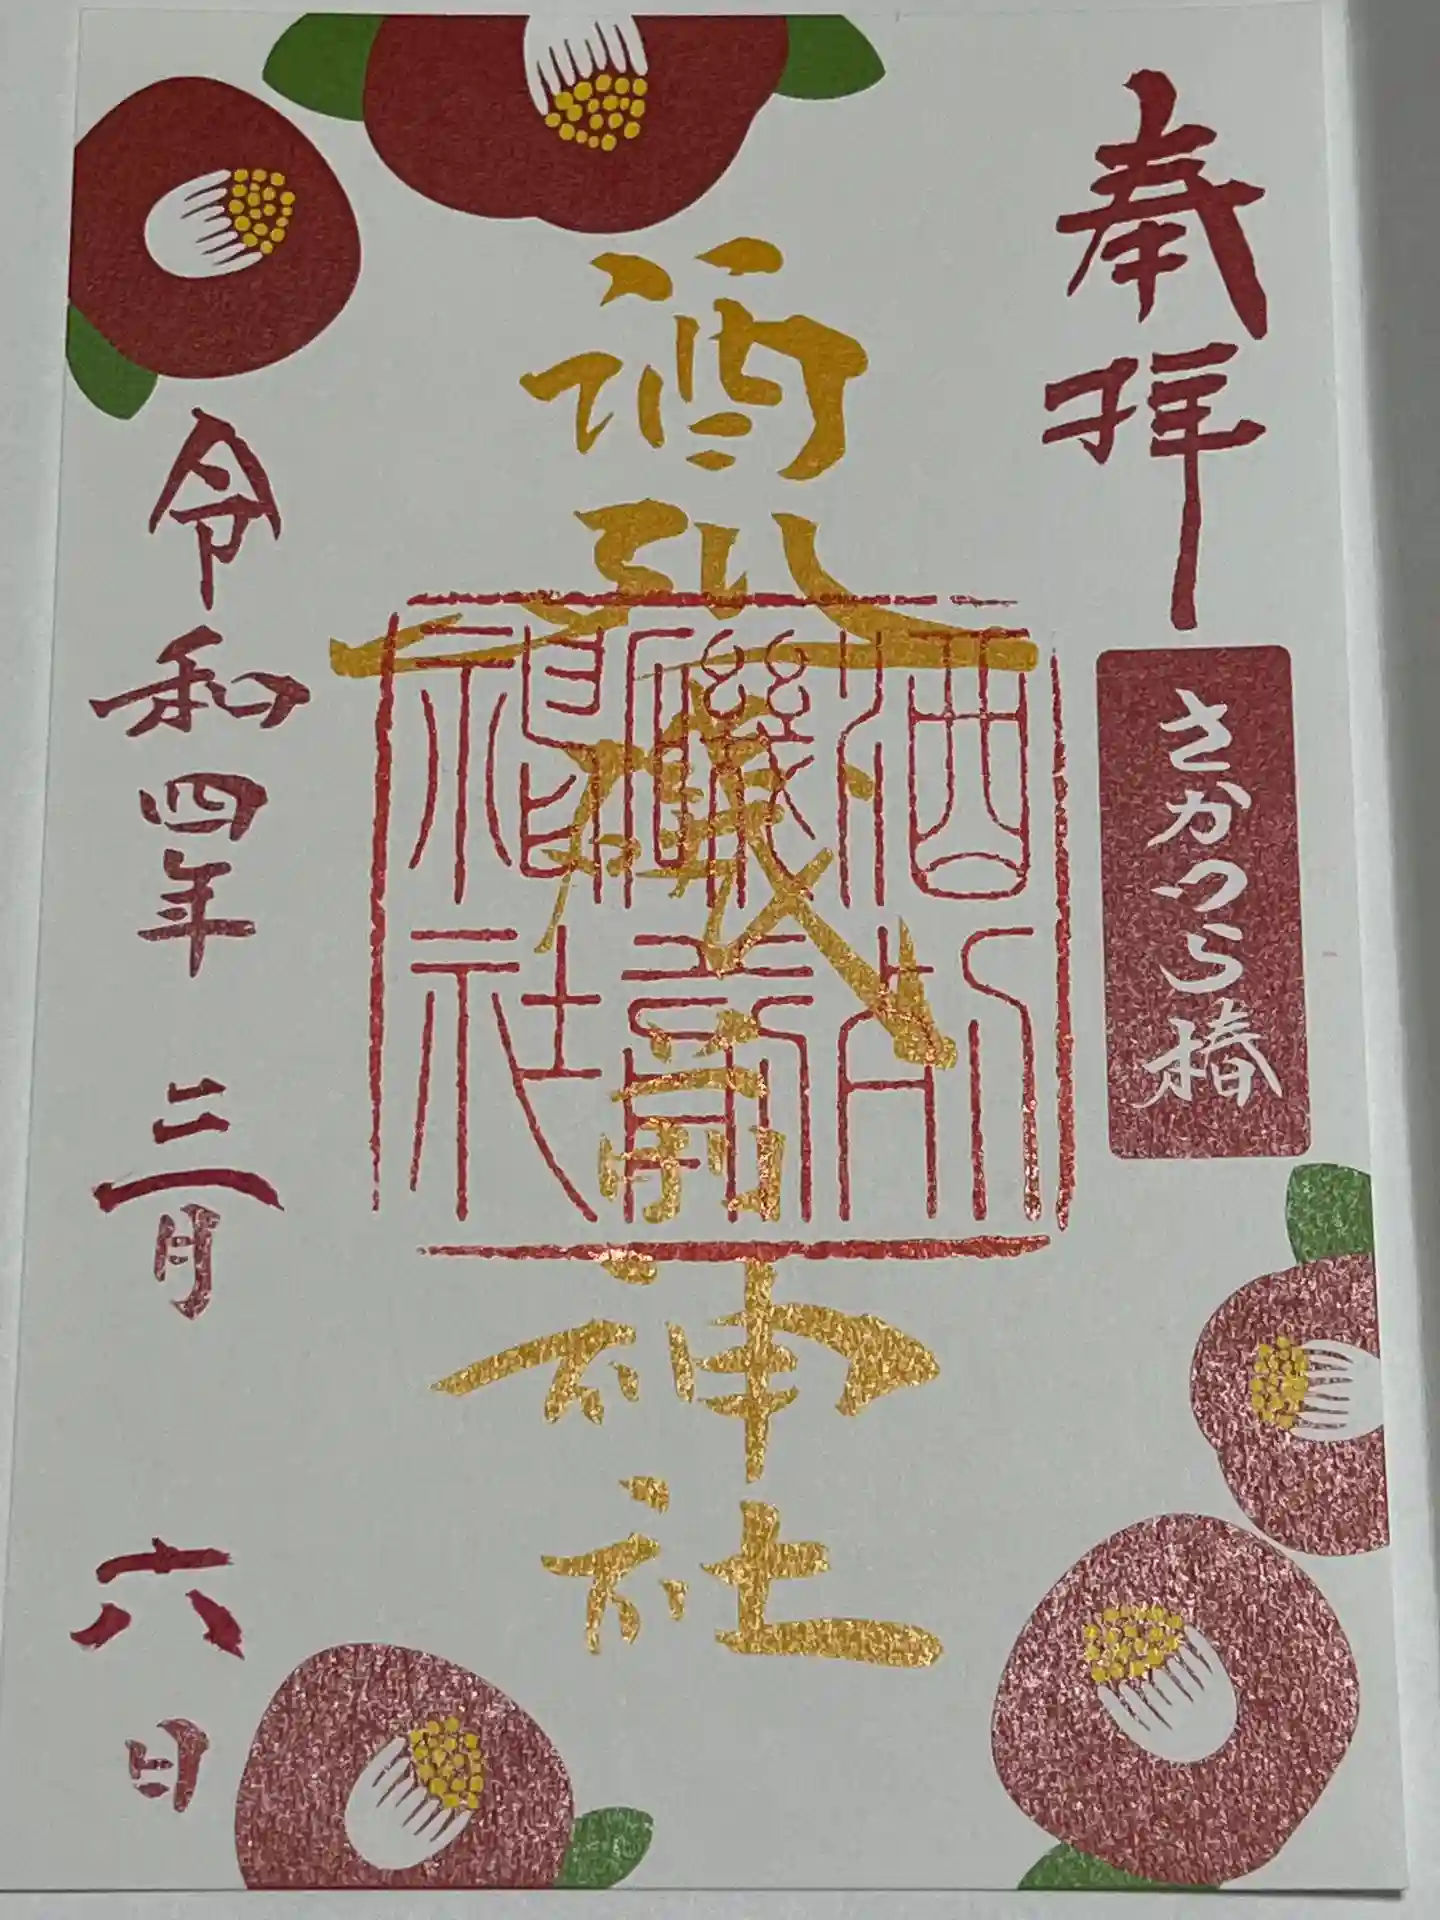 奉拝
さかつら椿
酒列磯前神社
酒列
磯前
神社
令和四年三月六日